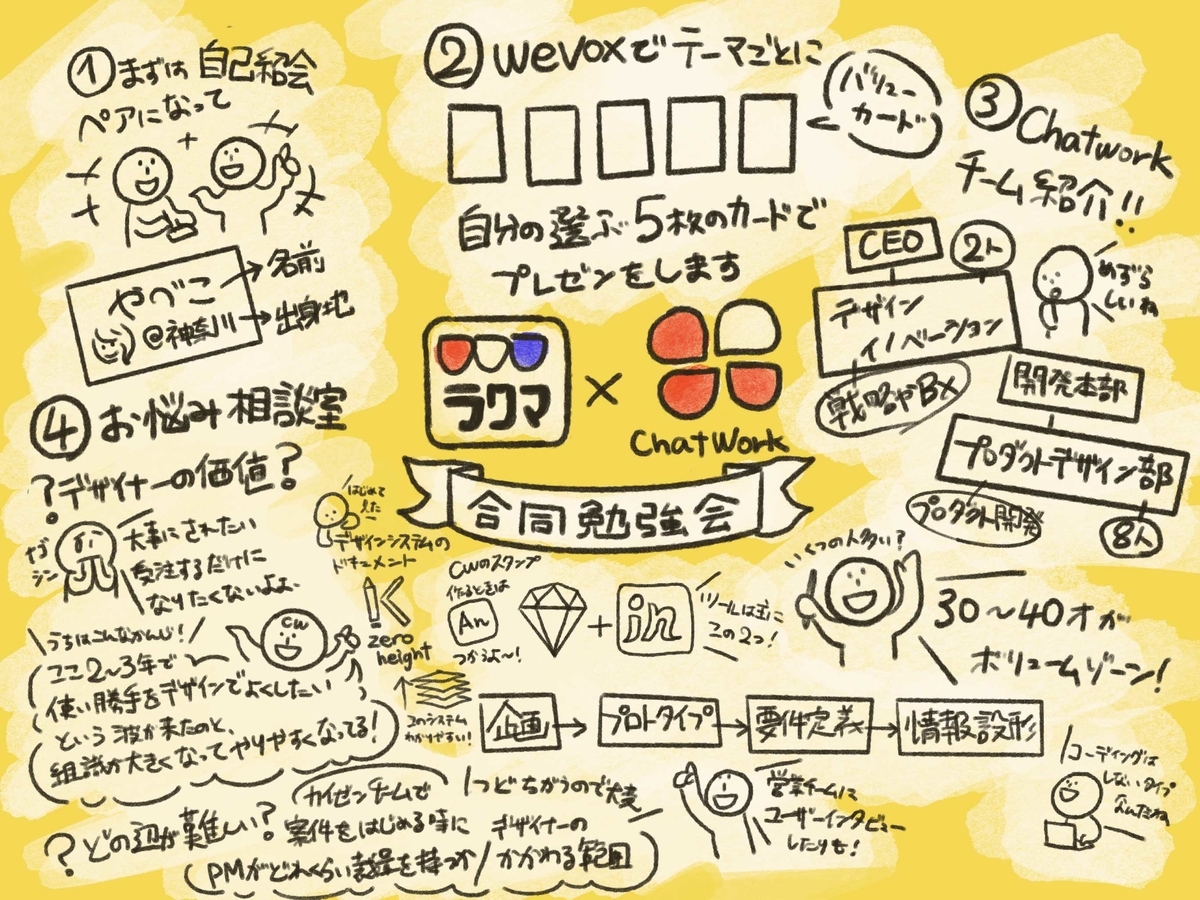 ① まずは 自己紹会
ペアになって
やべこ
@神奈川
名前
出身地
② wevoxでテーマごとに
バリュー
カード
自分の選ぶ5枚のカードで
プレゼンをします
ラクマ
×
ChatWork
合同勉強会
③ Chatwork
チーム紹介!!
CEO
2人
デザイン
イノベーション
めずら
しいね
戦略やBX
開発本部
プロダクトデザイン部
プロダクト開発
8人
④ お悩み相談室
?デザイナーの価値?
大事にされたい
受注するだけに
なりたくないよぉ、
はじめて
デザインシステムの
ドキュメント
zero
height
このシステム
わかりやすい!
うちはこんなかんじ!
CW
ここ2~3年で
使い勝手をデザインでよくしたい
という波が来たのと、
組織が大きくなってやりやすくなってる!
CWのスタンプ
作るときは
An
つかうよ~!
+
in
ツールは主に
この2つ!
いくつの人多い?
30~40才が
ボリュームゾーン!
企画
プロトタイプ
要件定義
情報設形
?どの辺が難しい?
カイゼンチームで
案件をはじめる時に
PMがどれくらい裁量を持つか
1つどちがうので焼
デザイナーの
かかわる範囲
営業チームに
ユーザーインタビュー
したりも!
コーディングは
しないタイプ
なんだね